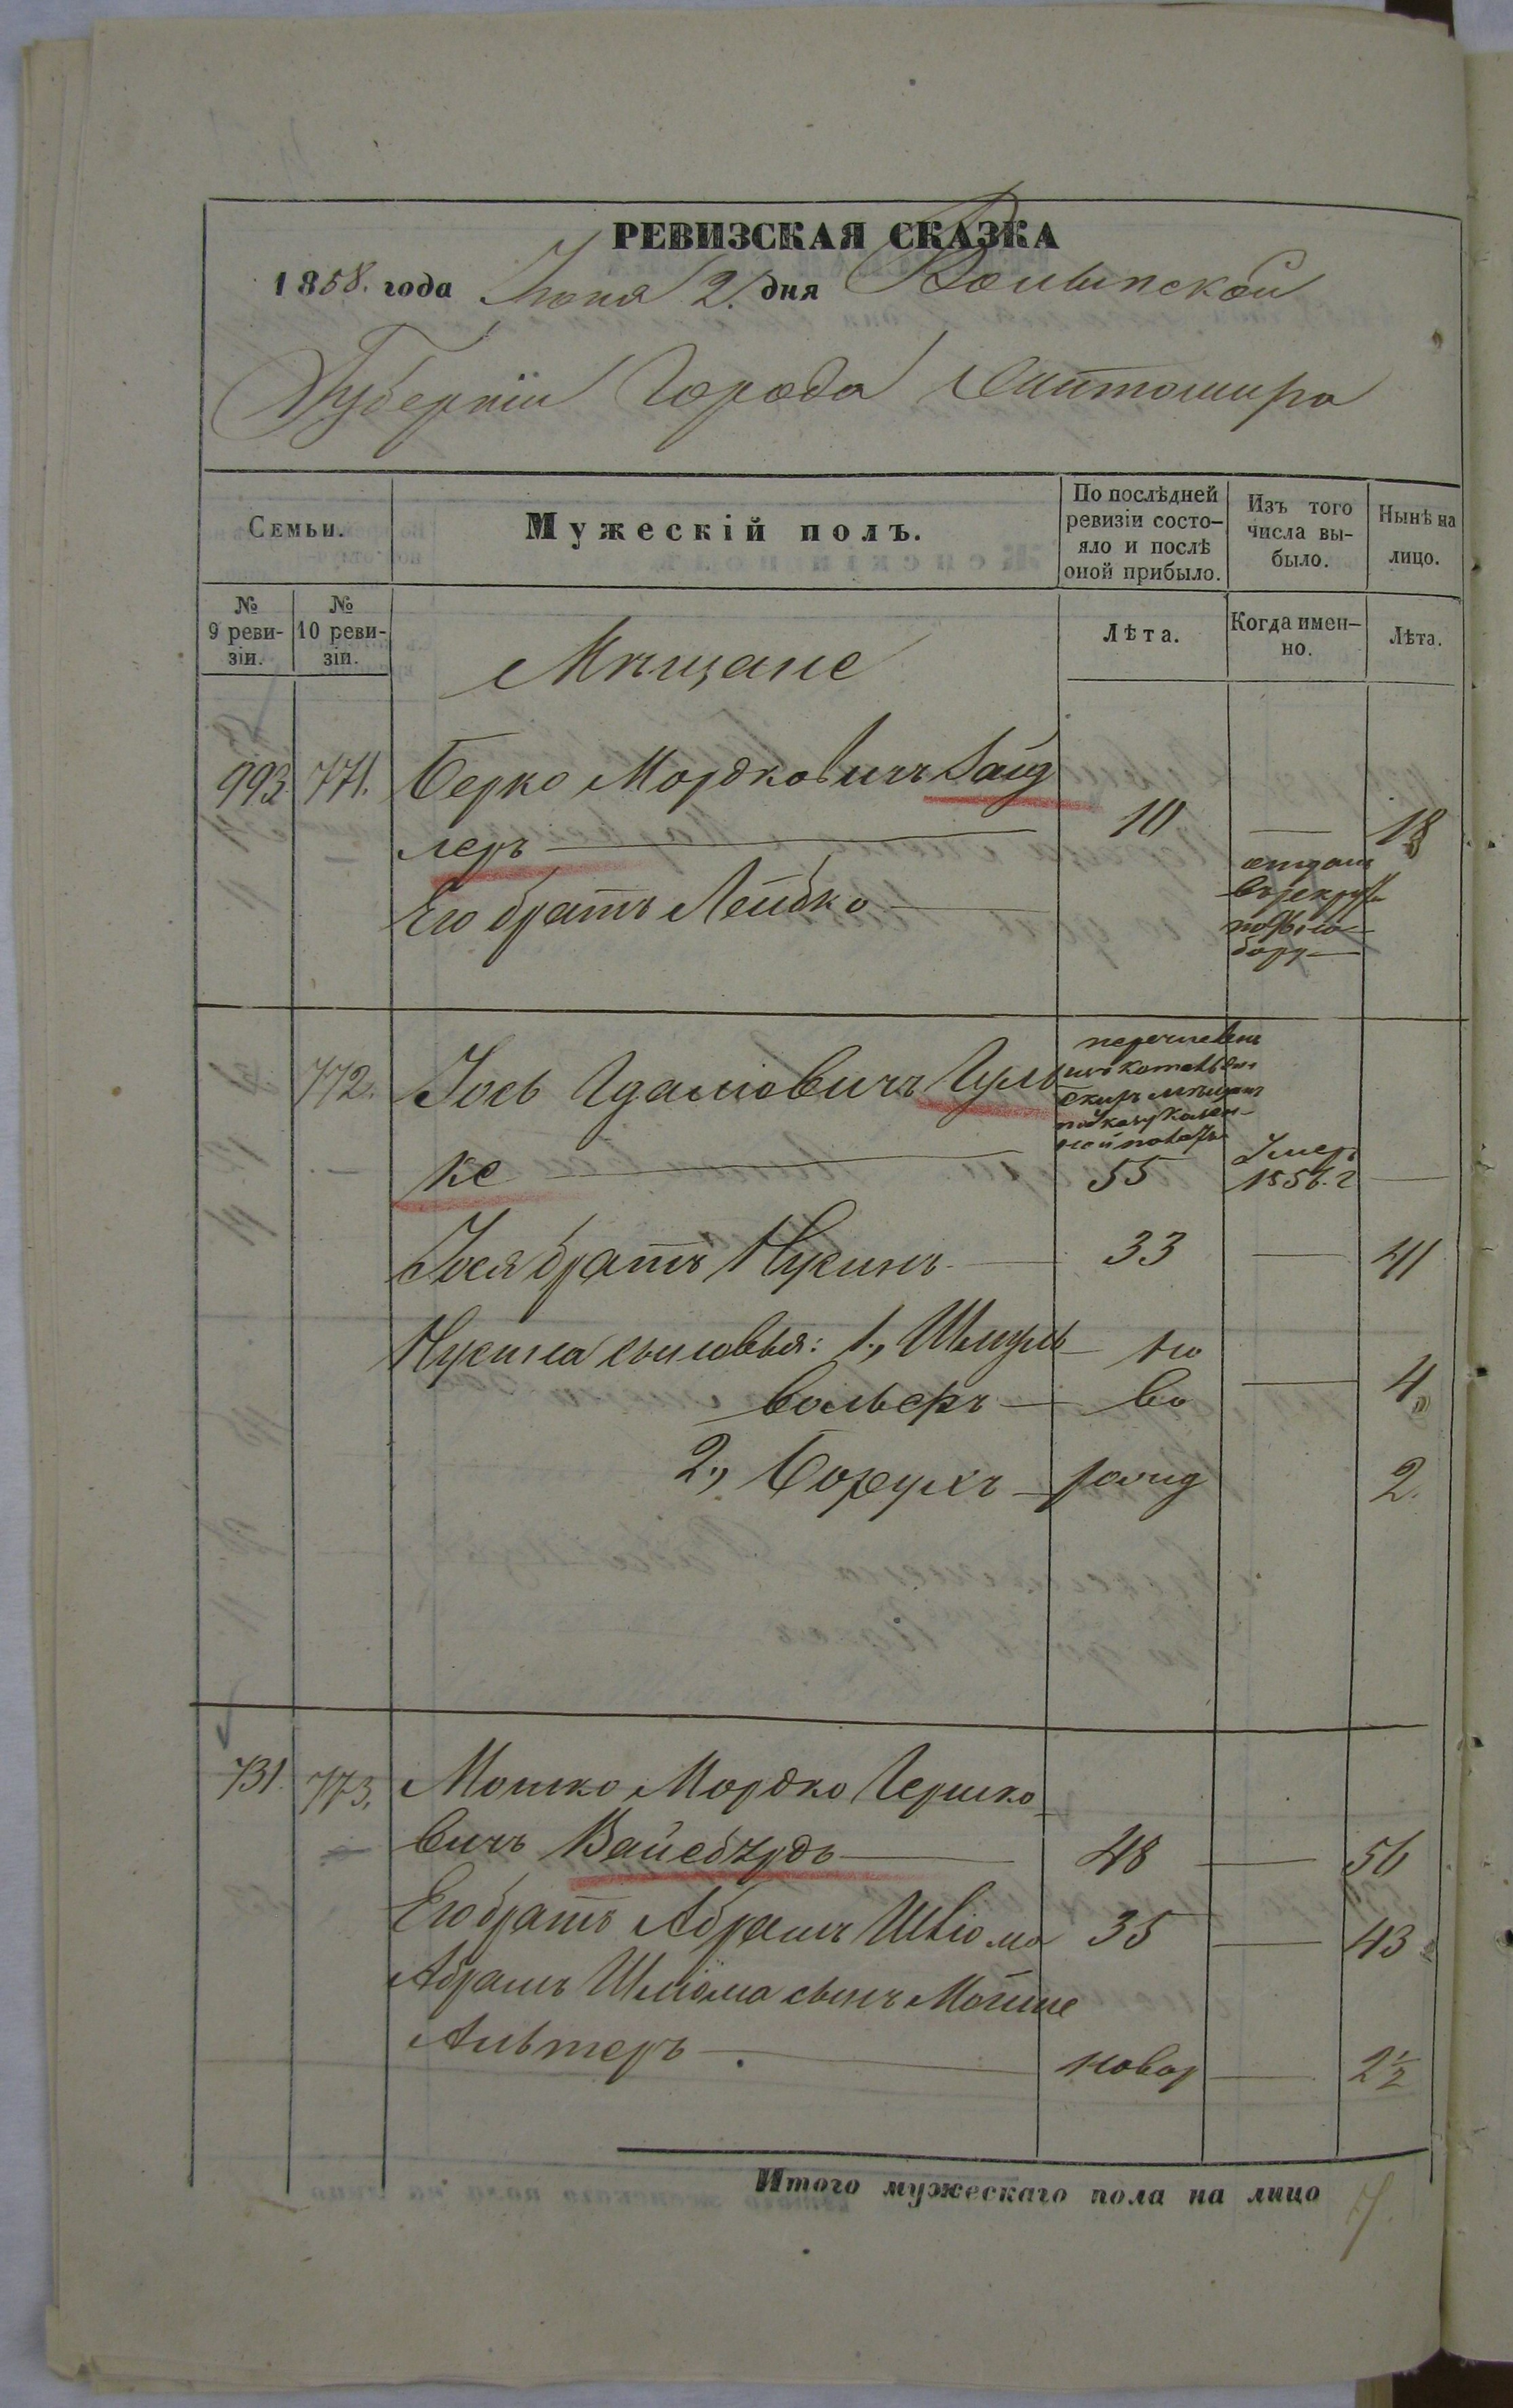 РЕВИЗСКАЯ СКАЗКА
1858. года Іюня 2. дня Волынской
Губерніи Города Житомира
Семьи.
Мужескій полъ.
По послѣдней ревизіи состо-
яло и послѣ
оной прибыло.
Изъ того
числа вы-
было.
Нынѣ на
лицо.
№
9 реви-
зіи.
№
10 реви-
зіи.
Мѣщане
Лѣта.
Когда имен-
но.
Лѣта.
993. 771. Берко Мордковичъ Зайд
леръ 10 18
Его братъ Лейбко
отданъ
въ рекруты
772. Іось Иделіовичъ
перечисленъ
ке 55 Умеръ 1856. г
Іося братъ Нусинъ 33 41
Нусина сыновья: 1., Шмуль но
Вольфъ во 4
2., Борухъ рожд 2.
731. 773. Мошко Мордко Гершко
вичъ Вайсбурдъ 48 56
Его братъ Абрамъ Шліома 35 43
Абрамъ Шліома сынъ Мойше
Альтеръ новор 2 1/2
Итого мужескаго пола на лицо 7.